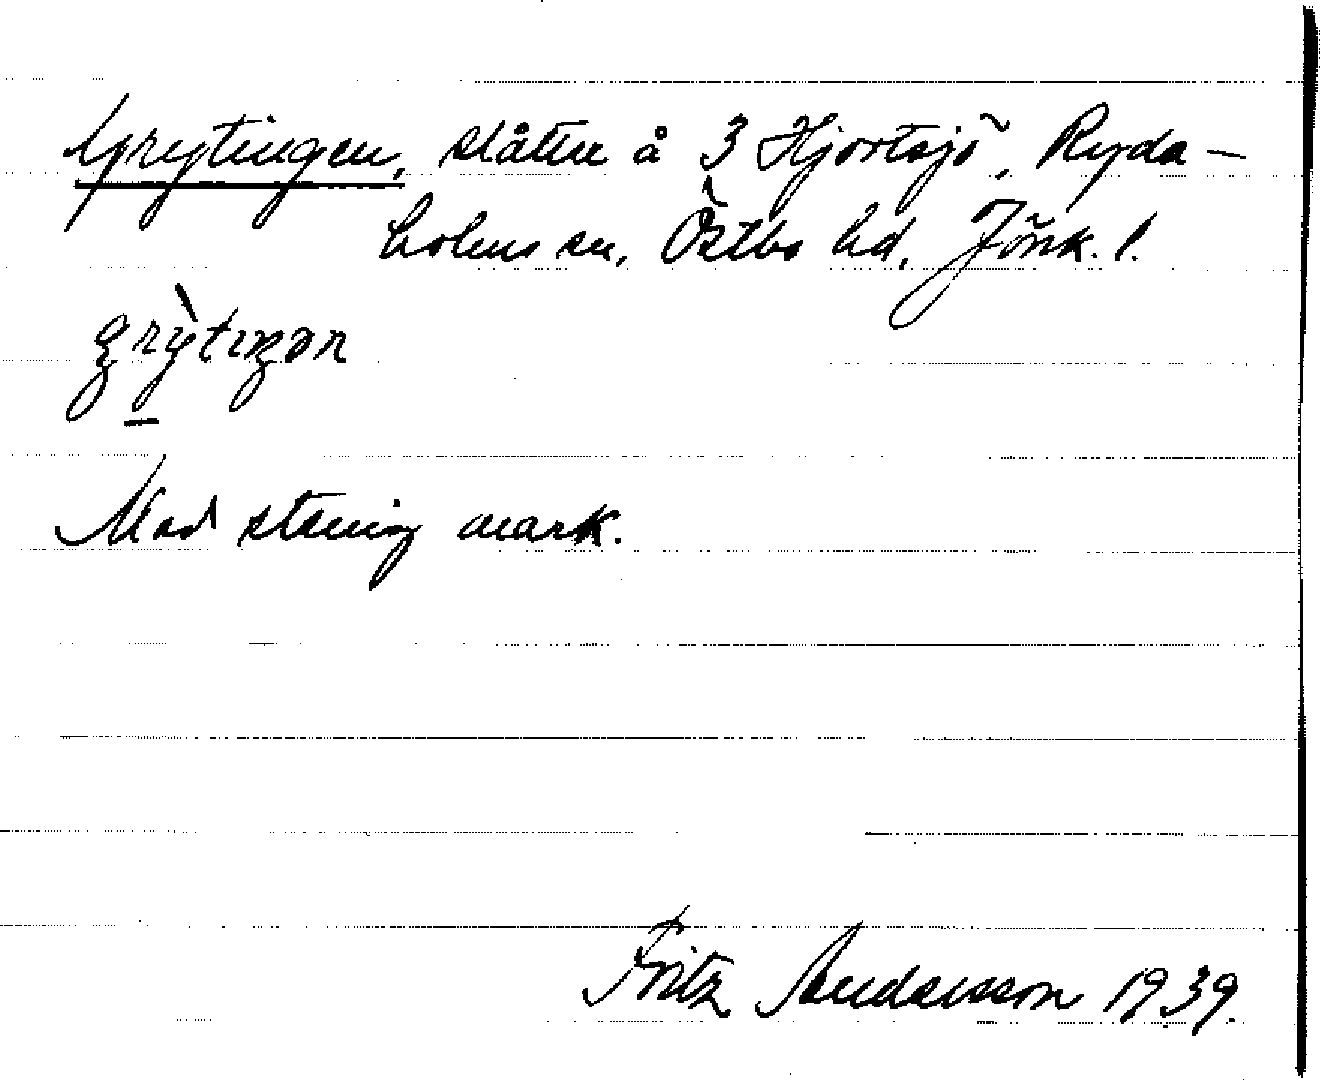 Grytingen, slåtter å 3 Hjortsjö, Ryda-
holms sn, Östbo hd, Jönk. l.
grỳtıŋən
Med stenig mark.
Fritz Andersson 1939.